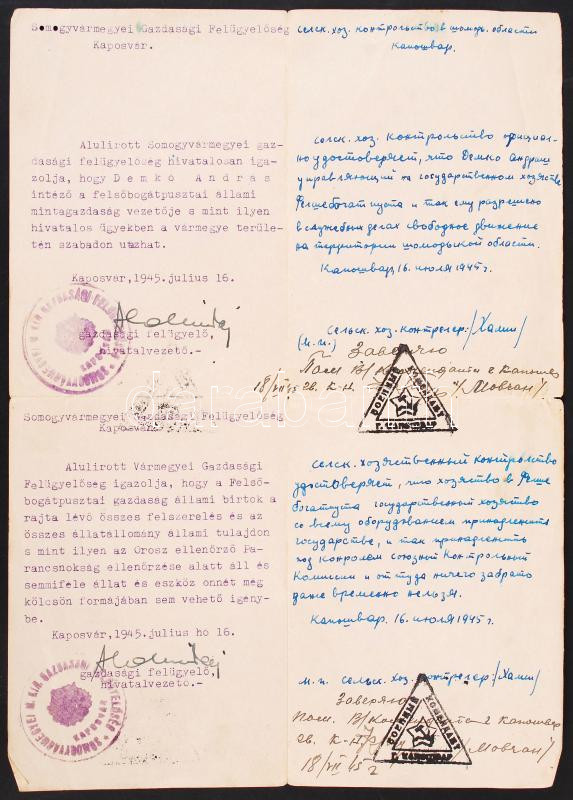 Somogyvármegyei Gazdasági Felügyelőség
Kaposvár.
Alulirott Somogyvármegyei gaz-
dasági felügyelőség Hivatalosan iga-
zolja, hogy Demkó András
intéző a felsőbogátpusztai állami
mintagazdaság vezetője s mint ilyen
hivatalos ügyekben a vármegye terüle-
tén szabadon utazhat.
Kaposvár,1945.julius 16.
gazdasági felügyelő,
hivatalvezető.-
сельск. хоз. контрольство в шомодь. области
Капошвар.
сельск. хоз. контрольство официаль-
но удостоверяет, что Демко Андраш
управляющий на государственном хозяйстве
и так ему разрешено
в служебных делах свободное движение
на территории шомодьской области.
Капошвар 16. июля 1945 г.
сельск. хоз. контролер: /Халми/
(м.п.) Заверяю
Пом. В/Коменданта г. Капошвар
18/VII 45 гв. к-н /Мовчан/
ВОЕННЫЙ КОМЕНДАНТ
Г. КАПОШВАР
darabanth
Somogyvármegyei Gazdasági Felügyelőség
Kaposvár.
Alulirott Vármegyei Gazdasági
Felügyelőség igazolja, hogy a Felső-
bogátpusztai gazdaság állami birtok a
rajta lévő összes felszerelés és az
összes állatállomány állami tulajdon
s mint ilyen az Orosz ellenőrző Pa-
rancsnokság ellenőrzése alatt áll és
semmiféle állat és eszköz onnét még
kölcsön formájában sem vehető igény-
be.
Kaposvár,1945.julius ho 16.
gazdasági felügyelő,
hivatalvezető.-
SOMOGYVÁRMEGYEI M. KIR. GAZDASÁGI FELÜGYELŐSÉG
KAPOSVÁR
сельск. хозяйственный контрольство
удостоверяет, что хозяйство в Фелше
государственный хозяйство
со всему оборудованием принадлежит
государстве, и так принадлежить
под контролем союзной Контрольный
Комиссии и от туда ничего забрать
даже временно нельзя.
Капошвар. 16. июля 1945 г.
м.п. сельск. хоз. контролер: /Халми/
Заверяю
Пом. В/Коменданта г. Капошвар
гв. к-н /Мовчан/
18/VII 45 г
ВОЕННЫЙ КОМЕНДАНТ
Г. КАПОШВАР